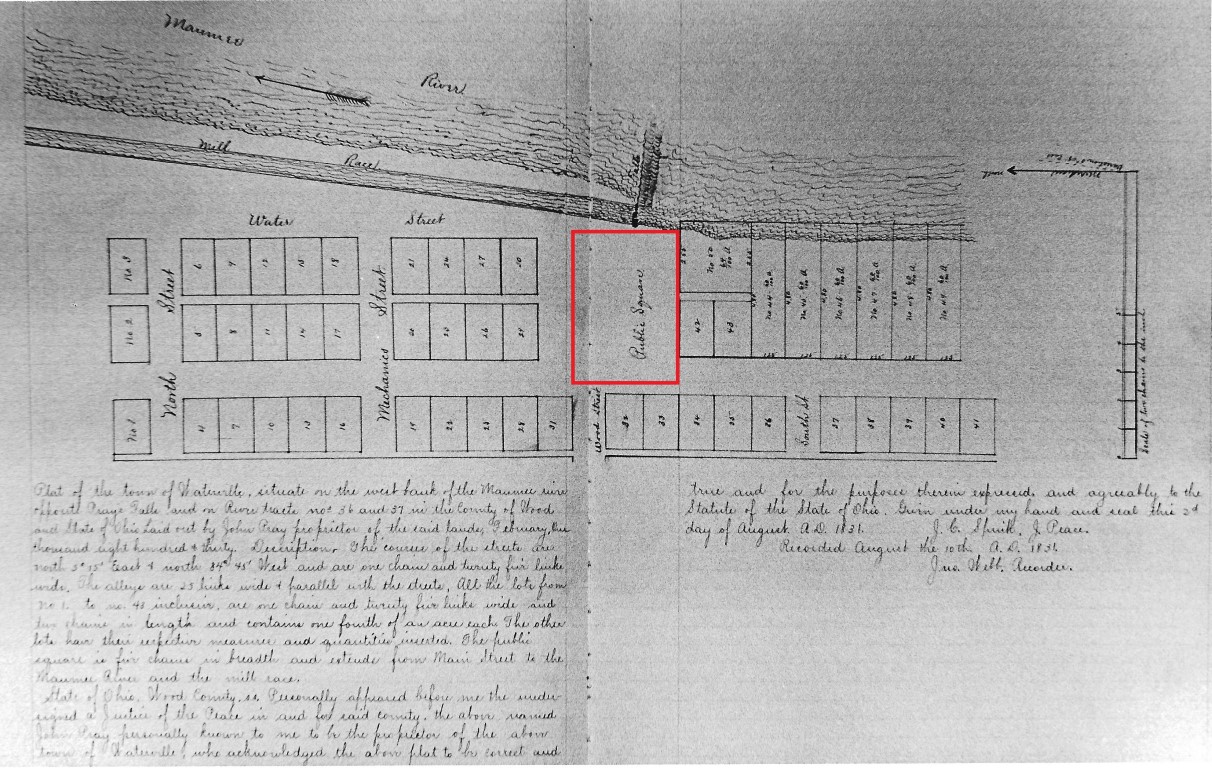 Maumee
River
Mill Race
Water Street
No 3
6
9
12
15
18
21
24
27
30
Public Square
North Street
Mechanics Street
No 2
5
8
11
14
17
20
23
26
29
42
43
No 1
4
7
10
13
16
19
22
25
28
31
Wood Street
32
33
34
35
36
South St
37
38
39
40
41
Scale of two chains to the inch
Plat of the town of Waterville, situate on the west bank of the Maumee
opposite Pray's Falls and on River tracts nos 36 and 37 in the County of Wood
and State of Ohio Laid out by John Pray proprietor of the said lands, February, One
thousand eight hundred & thirty. Description. The courses of the streets are
north 5° 15' East & north 84° 45' West and are one chain and twenty five links
wide. The alleys are 25 links wide & parallel with the streets. All the lots from
No 1. to no. 43 inclusive, are one chain and twenty five links wide and
two chains in length and contains one fourth of an acre each. The other
lots have their respective measures and quantities inserted. The public
square is five chains in breadth and extends from Main Street to the
Maumee River and the mill race.
State of Ohio, Wood County, ss. Personally appeared before me the under-
signed a Justice of the Peace in and for said county, the above named
John Pray personally known to me to be the proprietor of the above
town of Waterville, who acknowledged the above plat to be correct and
true and for the purposes therein expressed, and agreeably to the
Statute of the State of Ohio. Given under my hand and seal this 2d
day of August A.D. 1831. J. Peace.
Recorded August the 10th, A.D. 1831.
Jno. Webb, Recorder.